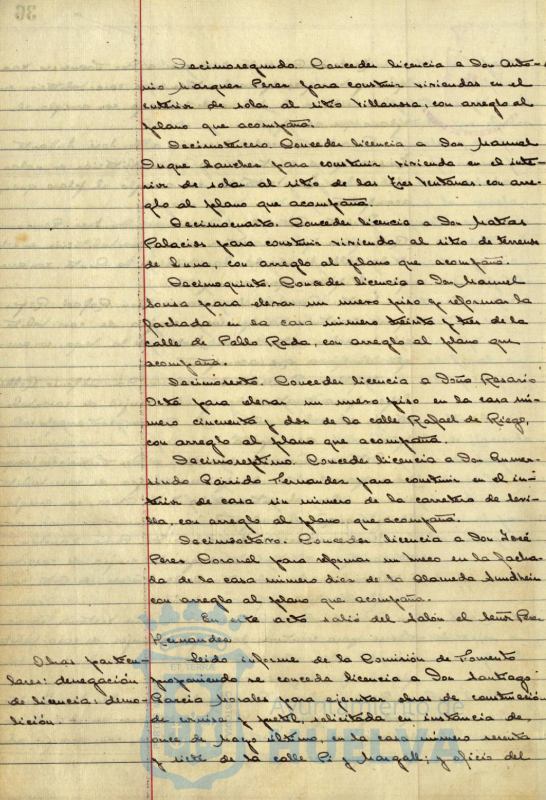 Decimosegundo. Conceder licencia a Don Anto-
nio Marquez Perez para construir viviendas en el
interior de solar al sitio Villarrosa, con arreglo al
plano que acompaña.
Decimotercero. Conceder licencia a Don Manuel
Duque Sanchez para construir vivienda en el inte-
rior de solar al sitio de las Tres Ventanas con arre-
glo al plano que acompaña.
Decimocuarto. Conceder licencia a Don Matias
Palacios para construir vivienda al sitio de terrenos
de Luna, con arreglo al plano que acompaña.
Decimoquinto. Conceder licencia a Don Manuel
Sousa para elevar un nuevo piso y reformar la
fachada en la casa número treinta y tres de la
calle de Pablo Rada, con arreglo al plano que
acompaña.
Decimosexto. Conceder licencia a Doña Rosario
Orta para elevar un nuevo piso en la casa nú-
mero cincuenta y dos de la calle Rafael de Riego,
con arreglo al plano que acompaña.
Decimoseptimo. Conceder licencia a Don Gumer-
sindo Garrido Fernandez para construir en el in-
terior de casa sin número de la carretera de Sevi-
lla, con arreglo al plano que acompaña.
Decimooctavo. Conceder licencia a Don José
Perez Coronel para reformar un hueco en la facha-
da de la casa número diez de la Alameda Sundheim
con arreglo al plano que acompaña.
En este acto salió del Salón el Señor Perez
Hernandez
Obras particu-
lares: denegación
de licencia: demo-
lición.
Leido informe de la Comisión de Fomento
proponiendo se conceda licencia a Don Santiago
Garcia Morales para ejecutar obras de construcción
de cornisa y pretil, solicitada en instancia de
once de Mayo último, en la casa número sesenta
y siete de la calle Pi y Margall; y oficio del
Ayuntamiento de
HUELVA